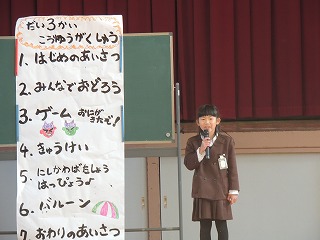 だい3かい
こうりゅうがくしゅう
1. はじめのあいさつ
2. みんなでおどろう
3. ゲーム おにが
きたぞ!
4. きゅうけい
5. にしかわばたしょう
はっぴょう♪
6. バルーン
7. おわりのあいさつ